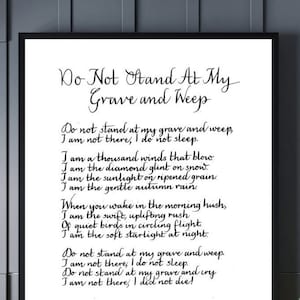 Do Not Stand At My
Grave and Weep
Do not stand at my grave and weep,
I am not there, I do not sleep.
I am a thousand winds that blow
I am the diamond glint on snow.
I am the sunlight on ripened grain
I am the gentle autumn rain
When you wake in the morning hush,
I am the swift, uplifting rush
Of quiet birds in circling flight
I am the soft starlight at night.
Do not stand at my grave and weep
I am not there, I do not sleep.
Do not stand at my grave and cry
I am not there, I did not die!